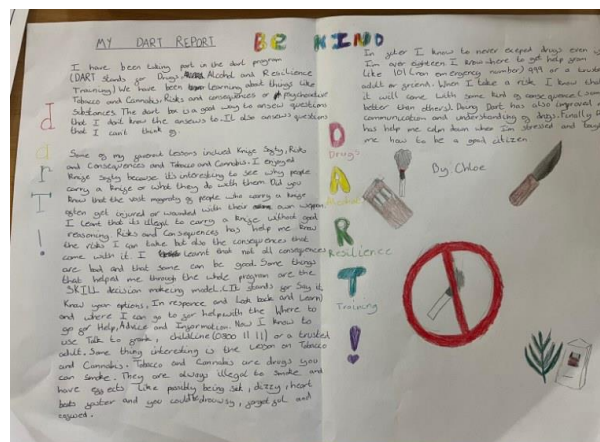 MY DART REPORT
BE KIND
I have been taking part in the dart program
(DART stands for Drugs Alcohol and Resilience
Training) We have been learning about things like
Tobacco and Cannabis, Risks and consequences or psychoactive
Substances The dart box is a good way to answer questions
that I don't know the answers to. It also answers questions
that I can't think of.
Some of my favorite lessons inclued Knife Safty, Risks
and Consequences and Tobacco and Cannabis. I enjoyed
Knife Safty because it's interesting to see why people
carry a knife or what they do with them. Did you
Know that the vast majority of people who carry a knife
often get injured or wounded with their own weapon.
I learnt that its illegal to carry a knife without good
reasoning. Risks and Consequences has help me know
the risks I can take but also the consequences that
come with it. I learnt that not all consequences
are bad and that some can be good. Some things
that helped me through the whole program are the
SKILL decision makeing model. (It stands for Say it,
Know your options, In responce and Look back and Learn)
and where I can go to for help with the Where to
go for Help, Advice and Information. Now I know to
use Talk to frank, childline (0800 11 11) or a trusted
adult. Some thing interesting is the Lesson on Tobacco
and Cannabis. Tobacco and Cannabis are drugs you
can smoke. They are always illegal to smoke and
have effects like possibly being sick, dizzy, heart
beats faster and you could be drowsy, forgetful and
In I know to never exeped drugs even
Im over eighteen I know where to get help from
like 101 (non emergency number) 999 or a
adult or friend. When I take a risk I know that
it will come with some kind of consequence (some
better then others). Doing Dart has also improved
communication and understanding of drugs. Finally
has help me calm down when I'm stressed and
me how to be a good citizen
By: Chloe
darT!
D
Drug's
A
Alcohol
R
Resilience
T
Training
!